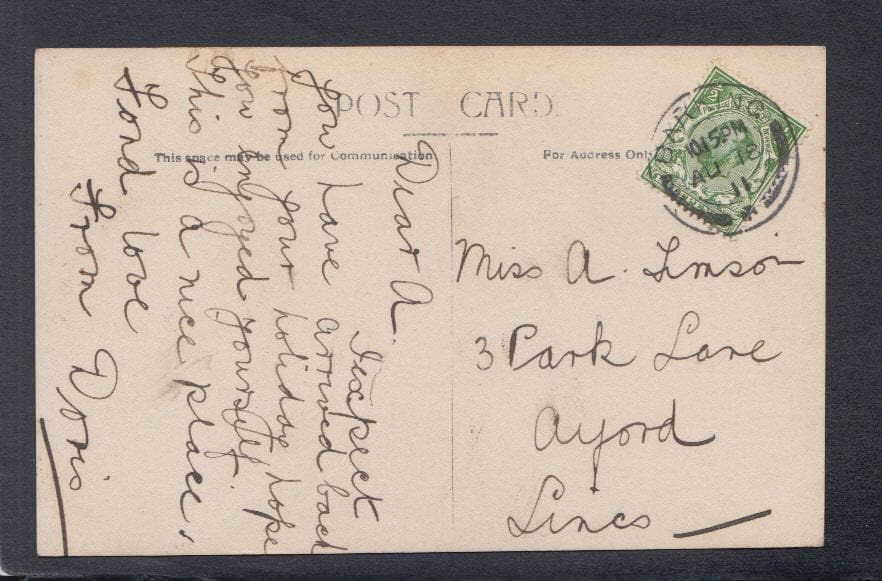 POST CARD.
This space may be used for Communication
For Address Only
DORKING
10.15 PM
AU 18
11
Dear A.
I expect
you have arrived back
from your holiday hope
you enjoyed yourself.
This is a nice place.
Fond love
from Doris
Miss A. Timson
3 Park Lane
Ayford
Lincs